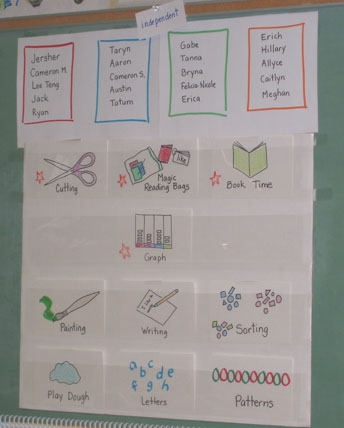 independent
Jersher
Cameron M.
Lee Teng
Jack
Ryan
Taryn
Aaron
Cameron S.
Austin
Tatum
Gabe
Tanna
Bryna
Felicia-Nicole
Erica
Erich
Hillary
Allyce
Caitlyn
Meghan
Cutting
like
Magic
Reading Bags
Book Time
Graph
Painting
I like
Writing
Sorting
Play Dough
a b c d e
f g h
Letters
Patterns